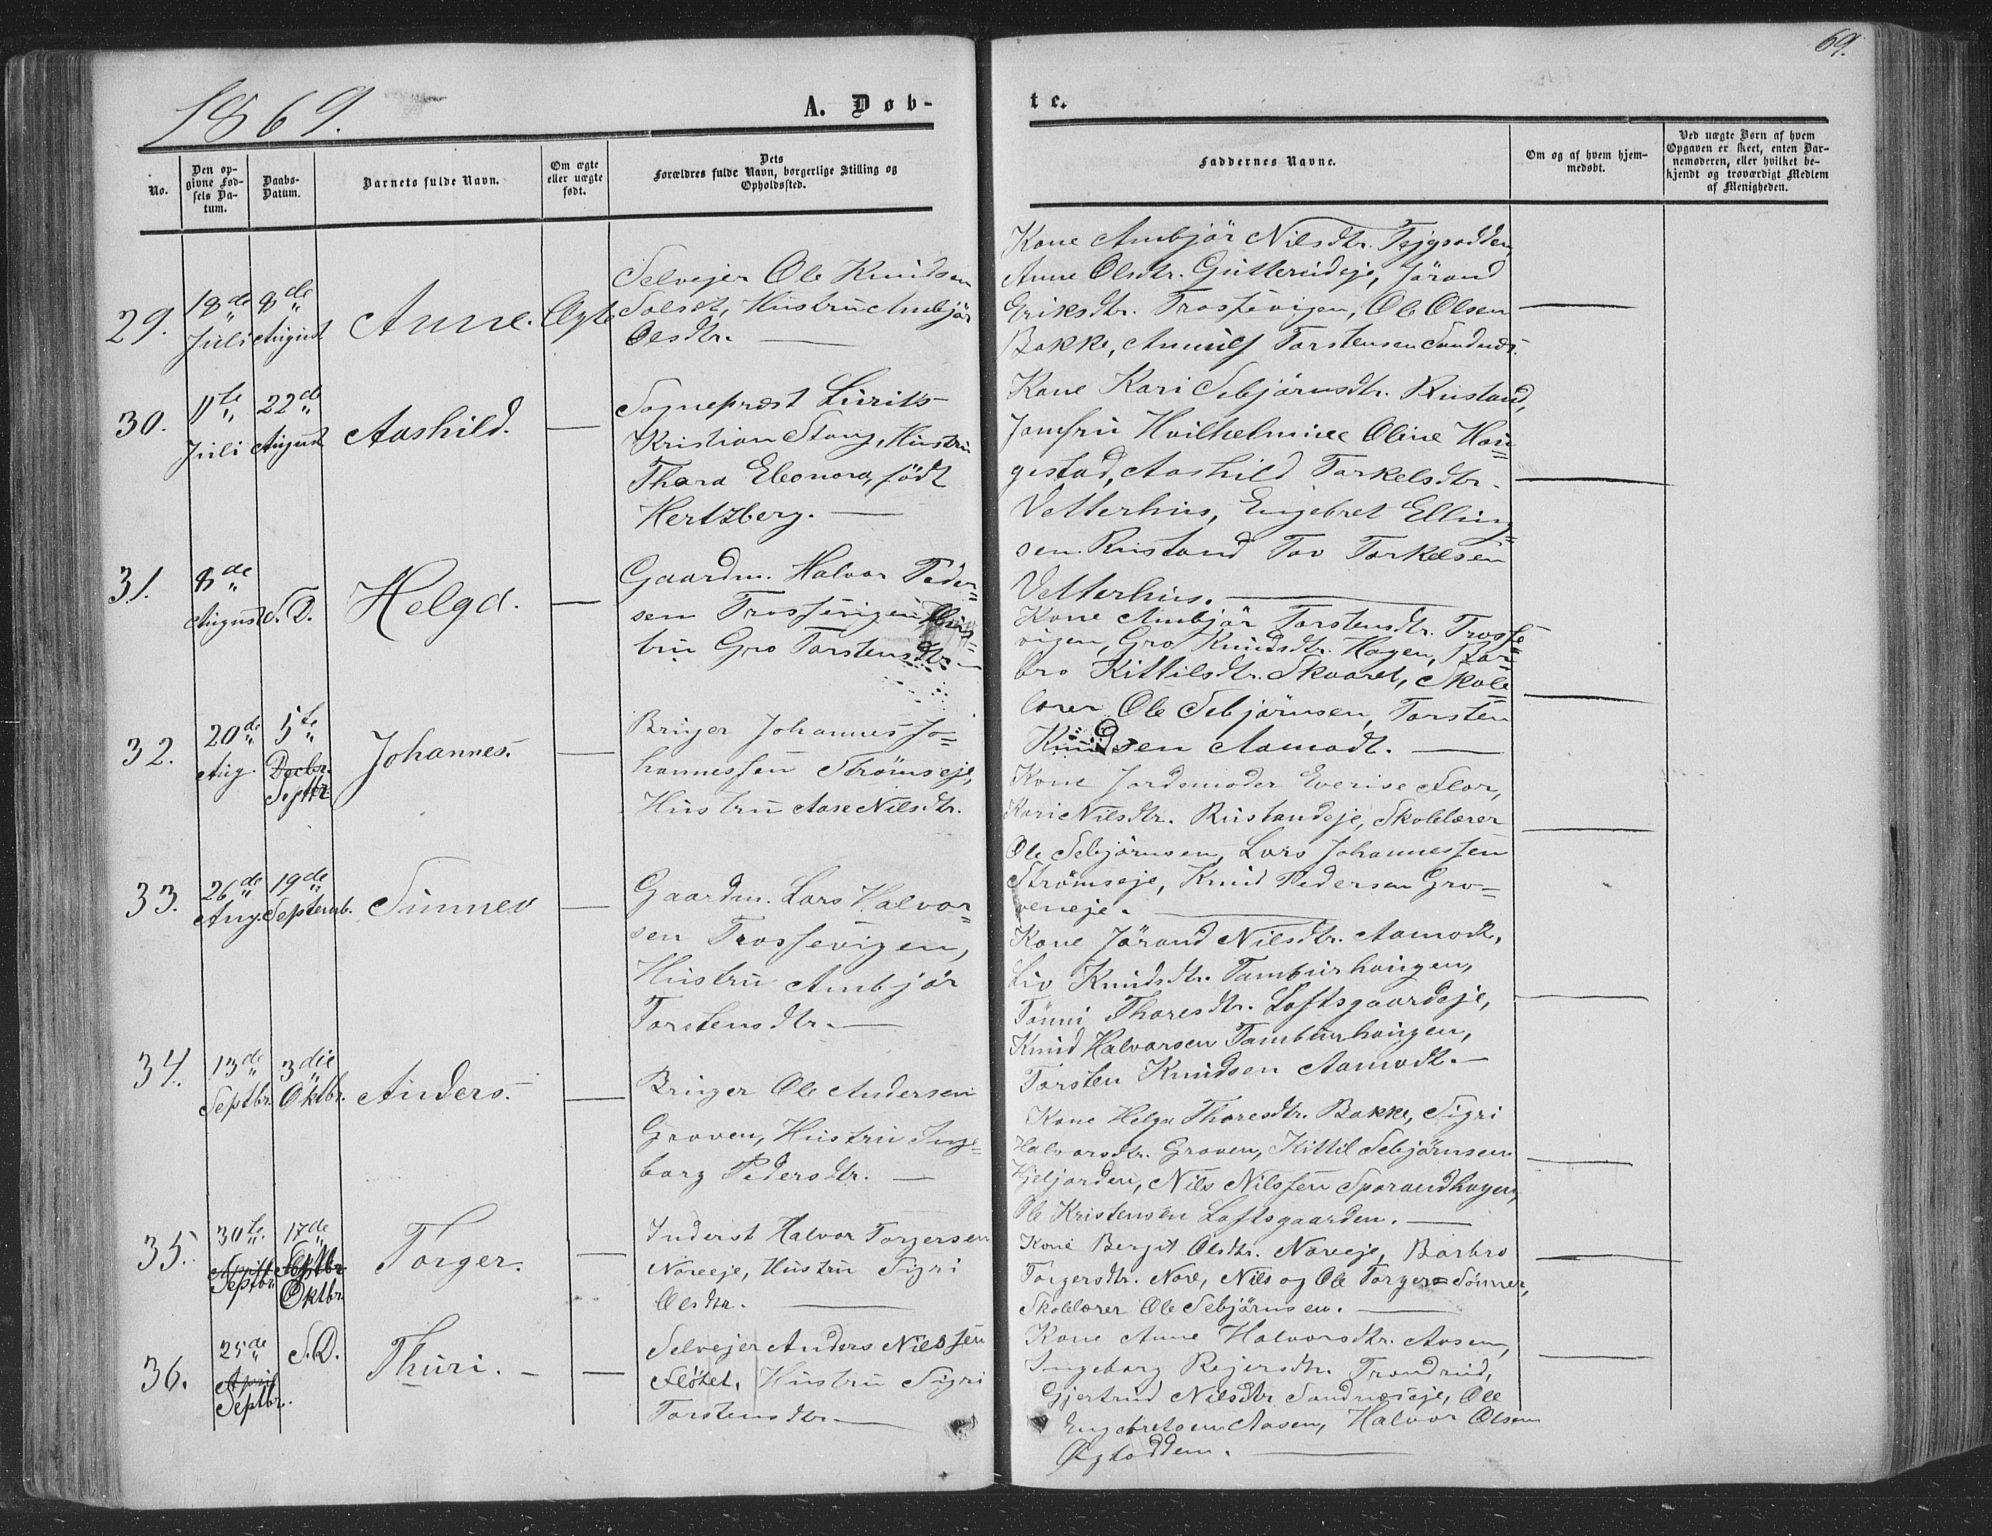 1869.
A. Døb-
te.
69.
No.
Den op-
givne Fød-
sels Da-
tum.
Daabs-
Datum.
Barnets fulde Navn.
Om ægte
eller uægte
født.
Dets
Forældres fulde Navn, borgerlige Stilling og
Opholdssted.
Faddernes Navne.
Om og af hvem hjem-
medøbt.
Ved uægte Børn af hvem
Opgaven er skeet, enten Bar-
nemoderen, eller hvilket be-
kjendt og troværdigt Medlem
af Menigheden.
29.
18de
Juli
8de
August
Anne.
Ægte
Selvejer Ole Knudsen
Hustru Ambjør
Olsdtr.
Kone Ambjör Nilsdtr.
Anne Olsdtr. Jörand
Eriksdtr. Trossevigen, Ole Olsen
Bakke, Torstensen Sandnæs.
30.
11te
Juli
22de
August
Aashild.
Sogneprest Lurits
Kristian Stang, Hustru
Thora Eleonora, född
Hertzberg.
Kone Kari Sebjörnsdtr. Rustand,
Jomfru Hvilhelmine Oline Hou=
gestad, Aashild Torkelsdtr.
Vetterhus, Engebret Elling=
sen Rustand Tov Torkelsen
Vetterhus.
31.
8de
August
S.D.
Helga.
Gaardm. Halvor Peder=
sen Trossevigen, Hus=
tru Gro Torstensdtr.
Kone Ambjör Torstensdtr. Trosse=
vigen, Gro Knudsdtr. Hagen, Bar=
bro Kittilsdtr. Skaaret, Skole=
lærer Ole Sebjörnsen, Torsten
Knudsen Aamodt.
32.
20de
Aug.
5te
Decbr.
Septbr.
Johannes.
Bruger Johannes Jo=
hannessen Strømseje,
Hustru Aase Nilsdtr.
Kone Jordemoder Everise Flor,
Kari Nilsdtr. Rustandeje, Skolelærer
Ole Sebjörnsen, Lars Johannessen
Strömseje, Knud Pedersen Gro=
veneje.
33.
26de
Aug.
19de
Septemb.
Sunnev
Gaardm. Lars Halvor=
sen Trossevigen,
Hustru Ambjör
Torstensdtr.
Kone Jörand Nilsdtr. Aamodt,
Liv Knudsdtr. Tamburhaugen,
Tönni Thoresdtr. Loftsgaardeje,
Knud Halvorsen Tamburhaugen,
Torsten Knudsen Aamodt.
34.
13de
Septbr.
3die
Oktbr.
Anders.
Bruger Ole Andersen
Groven, Hustru Inge=
borg Pedersdtr.
Kone Helga Thoresdtr. Bakke, Sigri
Halvorsdtr. Groven, Kittil Sebjörnsen
Nils Nilssen Sporandhagen,
Ole Kristensen Loftsgaarden.
35.
30te
Septbr.
17de
Septbr.
Oktbr.
Torger.
Inderst Halvor Torgersen
Noreeje, Hustru Sigri
Olsdtr.
Kone Bergit Olsdtr. Noreeje, Barbro
Torgersdtr. Nore, Nils og Ole Torgers Sönner,
Skolelærer Ole Sebjörnsen.
36.
25de
April
Septbr.
S.D.
Thuri.
Selvejer Anders Nilssen
Flötet, Hustru Sigri
Torstensdtr.
Kone Anne Halvorsdtr. Aasen,
Ingeborg Rejersdtr. Trondrud,
Gjertrud Nilsdtr Sandnæseje, Ole
Engebretsen Aasen, Halvor Olsen